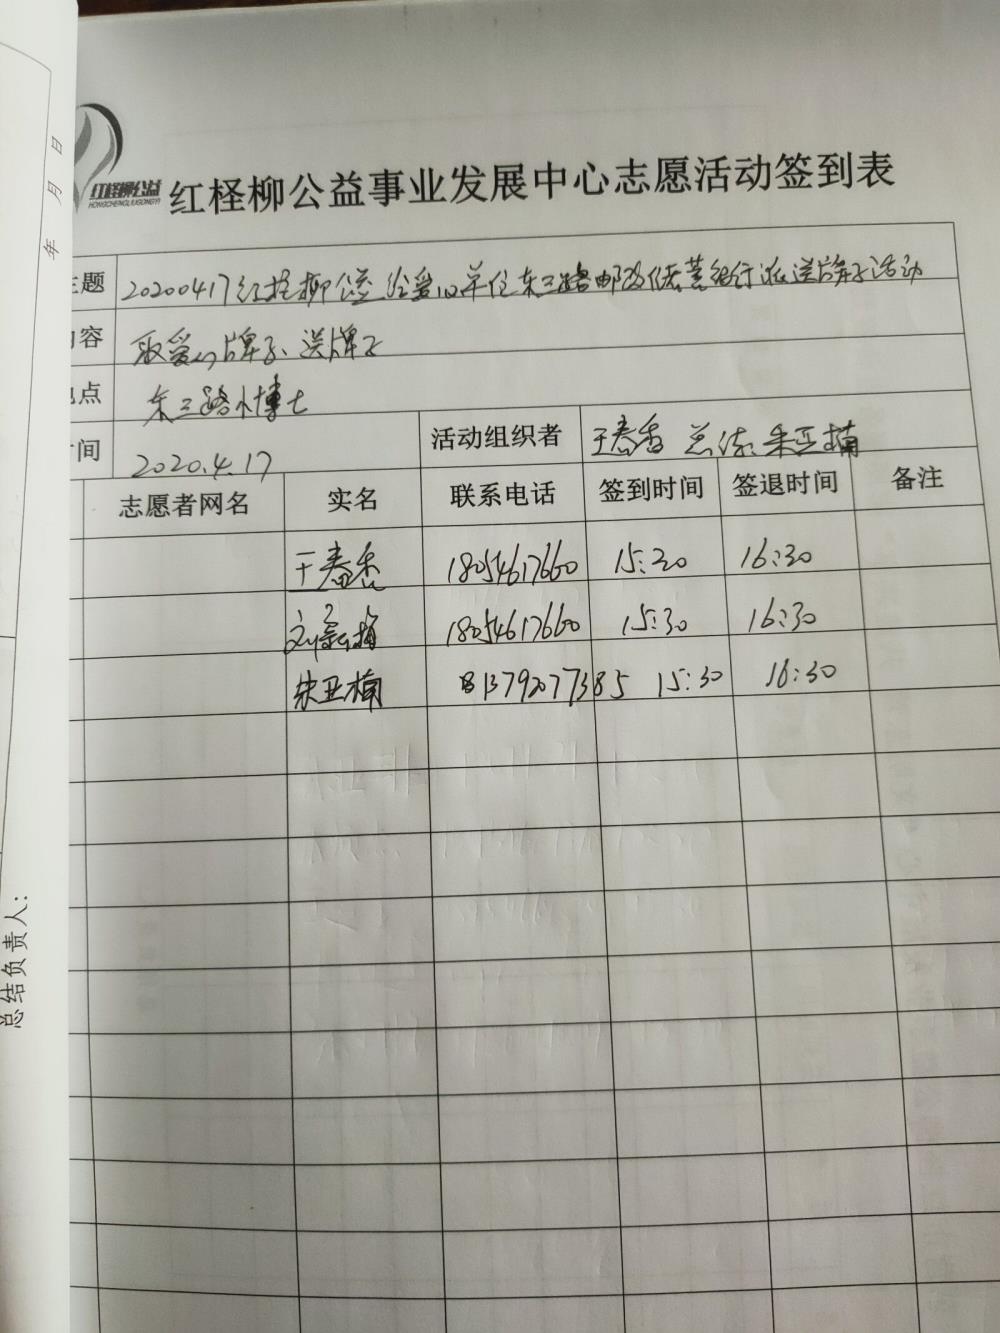 年 月 日
总结负责人:
红柽柳公益
HONGCHENGLIUGONGYI
红柽柳公益事业发展中心志愿活动签到表
主题 20200417红柽柳公益给爱心单位东三路邮政储蓄银行派送牌子活动
内容 取爱心牌子、送牌子
地点 东三路小博士
时间 2020.4.17 活动组织者 王春香 总结:朱亚楠
志愿者网名 实名 联系电话 签到时间 签退时间 备注
王春香 18054617660 15:30 16:30
18054617660 15:30 16:30
朱亚楠 13792077385 15:30 16:30